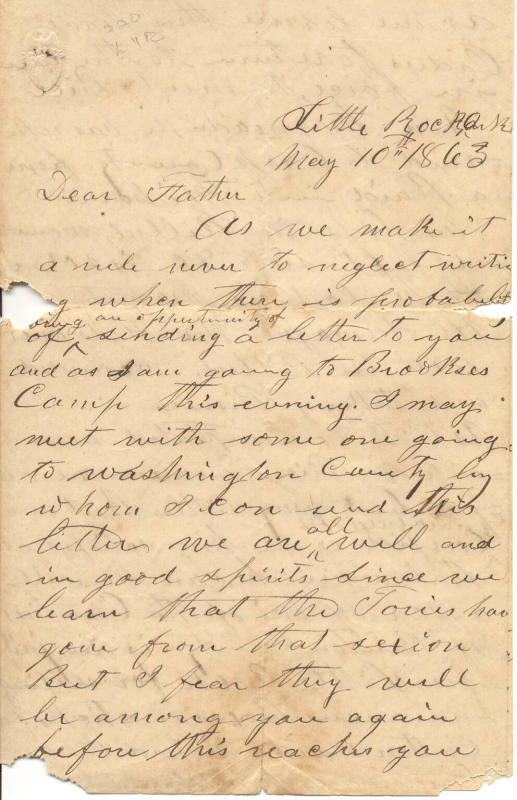 Little Rock Ark
May 10th 1863
Dear Father
As we make it
a rule never to neglect writi
g when there is probabelit
an oppertunity of
of sending a letter to you
and as I am going to Brookses
Camp this evning. I may
meet with some one going
to washington County by
whom I con send this
letter we are all well and
in good spirits since we
learn that the Tories hav
gon from that sexion
But I fear they will
be among you again
before this reaches you